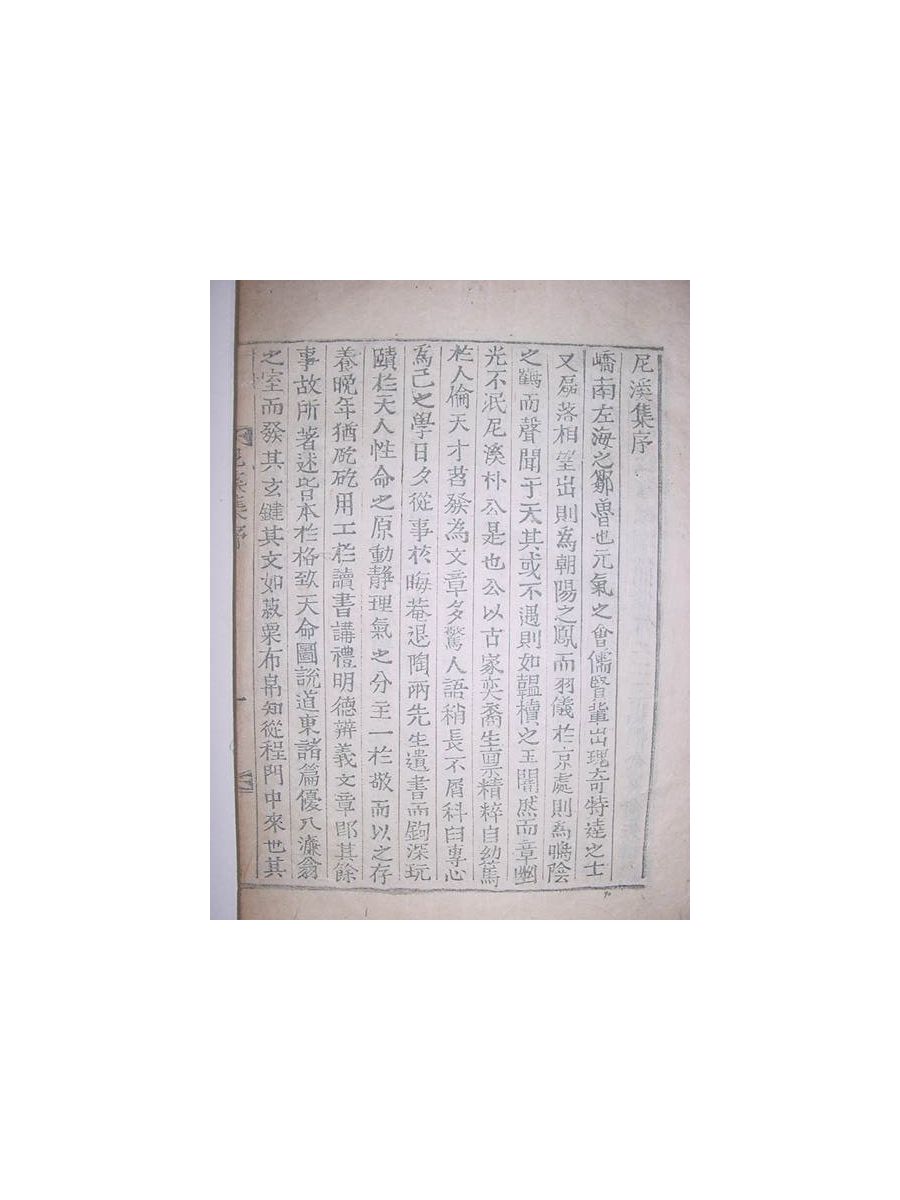 尼溪集序
嶠南左海之鄒魯也元氣之會儒賢輩出瑰奇特達之士
又磊落相望出則為朝陽之鳳而羽儀於京處則為鳴陰
之鶴而聲聞于天其或不遇則如韞櫝之玉闇然而章幽
光不泯尼溪朴公是也公以古家奕裔生禀精粹自幼篤
於人倫天才苕發為文章多驚人語稍長不屑科臼專心
為己之學日夕從事於晦菴退陶兩先生遺書而鉤深玩
賾於天人性命之原動靜理氣之分主一於敬而以之存
養晚年猶矻矻用工於讀書講禮明德辨義文章卽其餘
事故所著述皆本於格致天命圖說道東諸篇優入濂翁
之室而發其玄鍵其文如菽粟布帛知從程門中來也其
尼溪集序
一